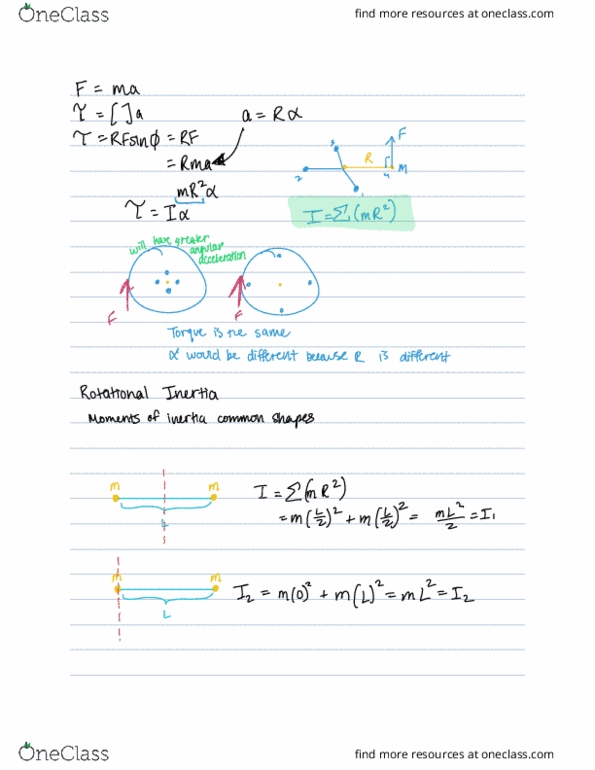 OneClass
find more resources at oneclass.com
F = ma
τ = [ ] a
a = Rα
τ = RF sinϕ = RF
= Rma
mR²α
τ = Iα
F
R
M
3
2
1
4
I = Σ (mR²)
will have greater angular acceleration
F
F
Torque is the same
α would be different because R is different
Rotational Inertia
Moments of inertia common shapes
m
m
I = Σ(mR²)
= m(L/2)² + m(L/2)² = mL²/2 = I₁
L
m
m
I₂ = m(0)² + m(L)² = mL² = I₂
L
OneClass
find more resources at oneclass.com